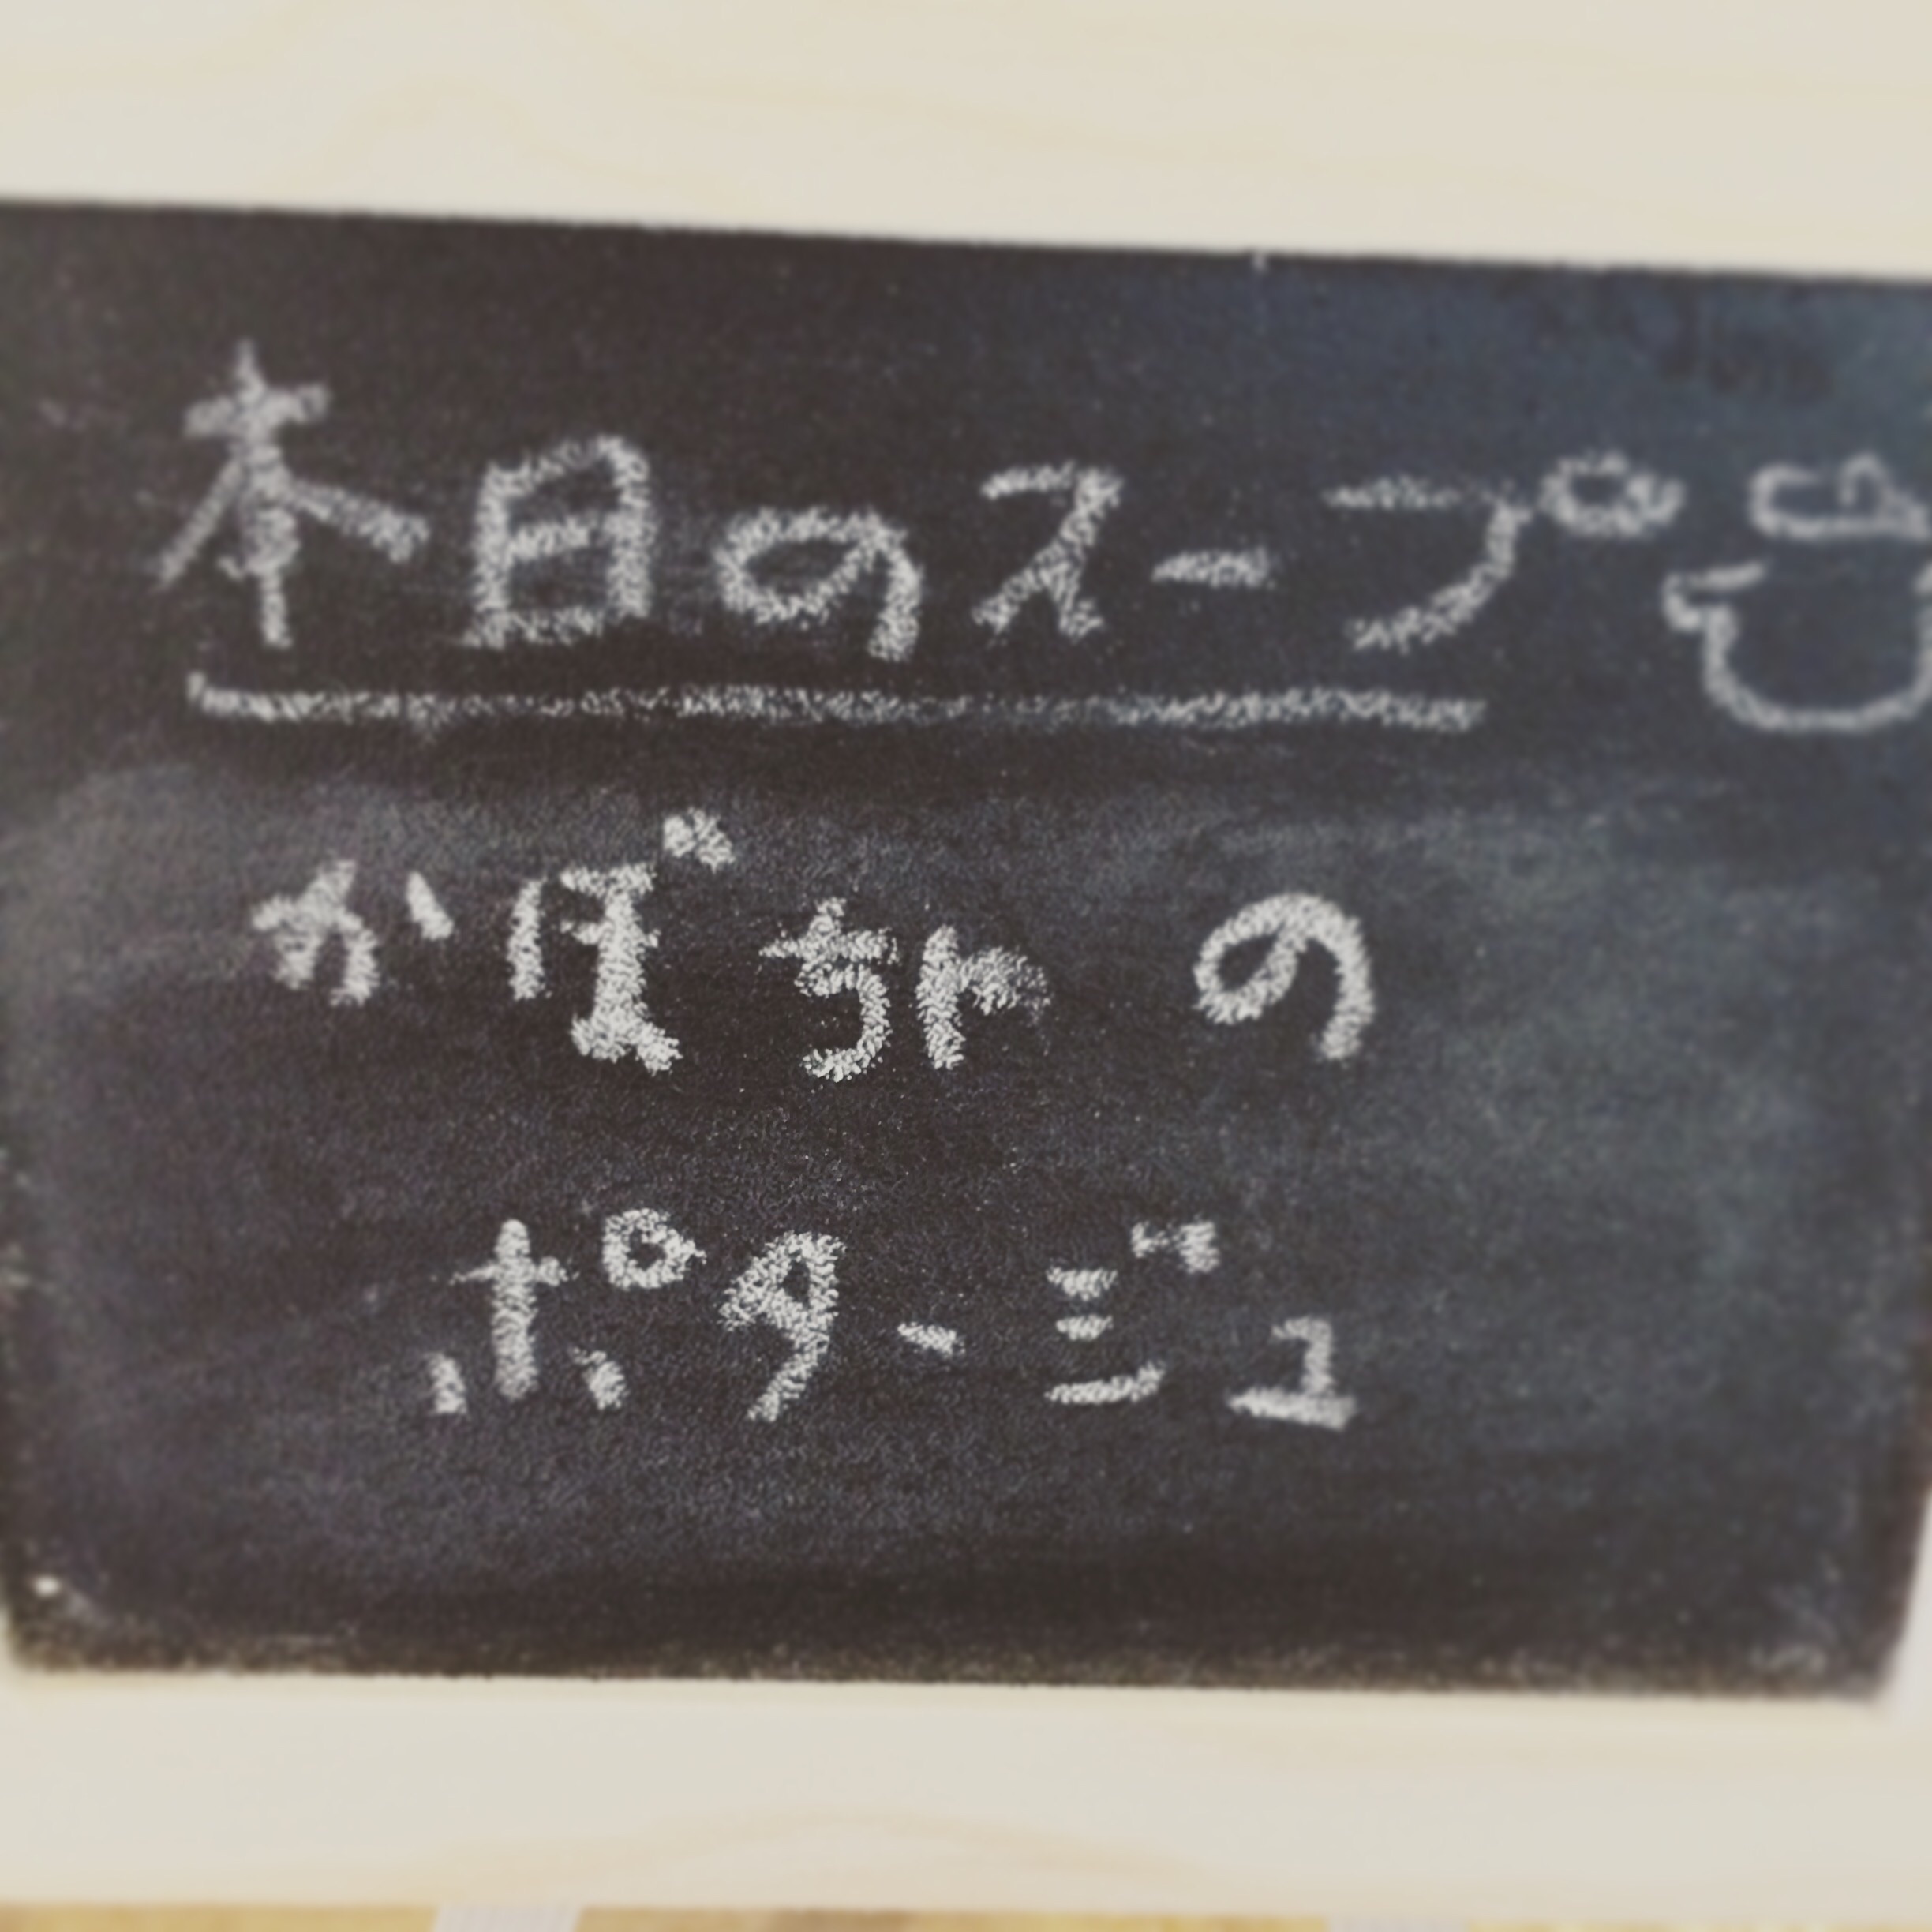 本日のスープ
かぼちゃの
ポタージュ